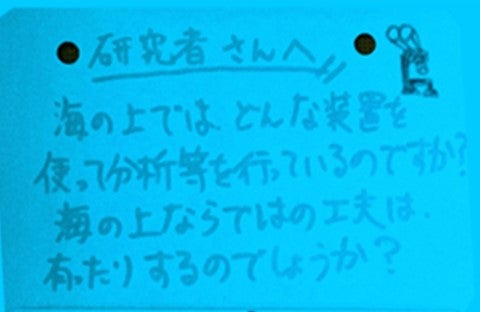 研究者さんへ
海の上では、どんな装置を
使って分析等を行っているのですか?
海の上ならではの工夫は、
有ったりするのでしょうか?